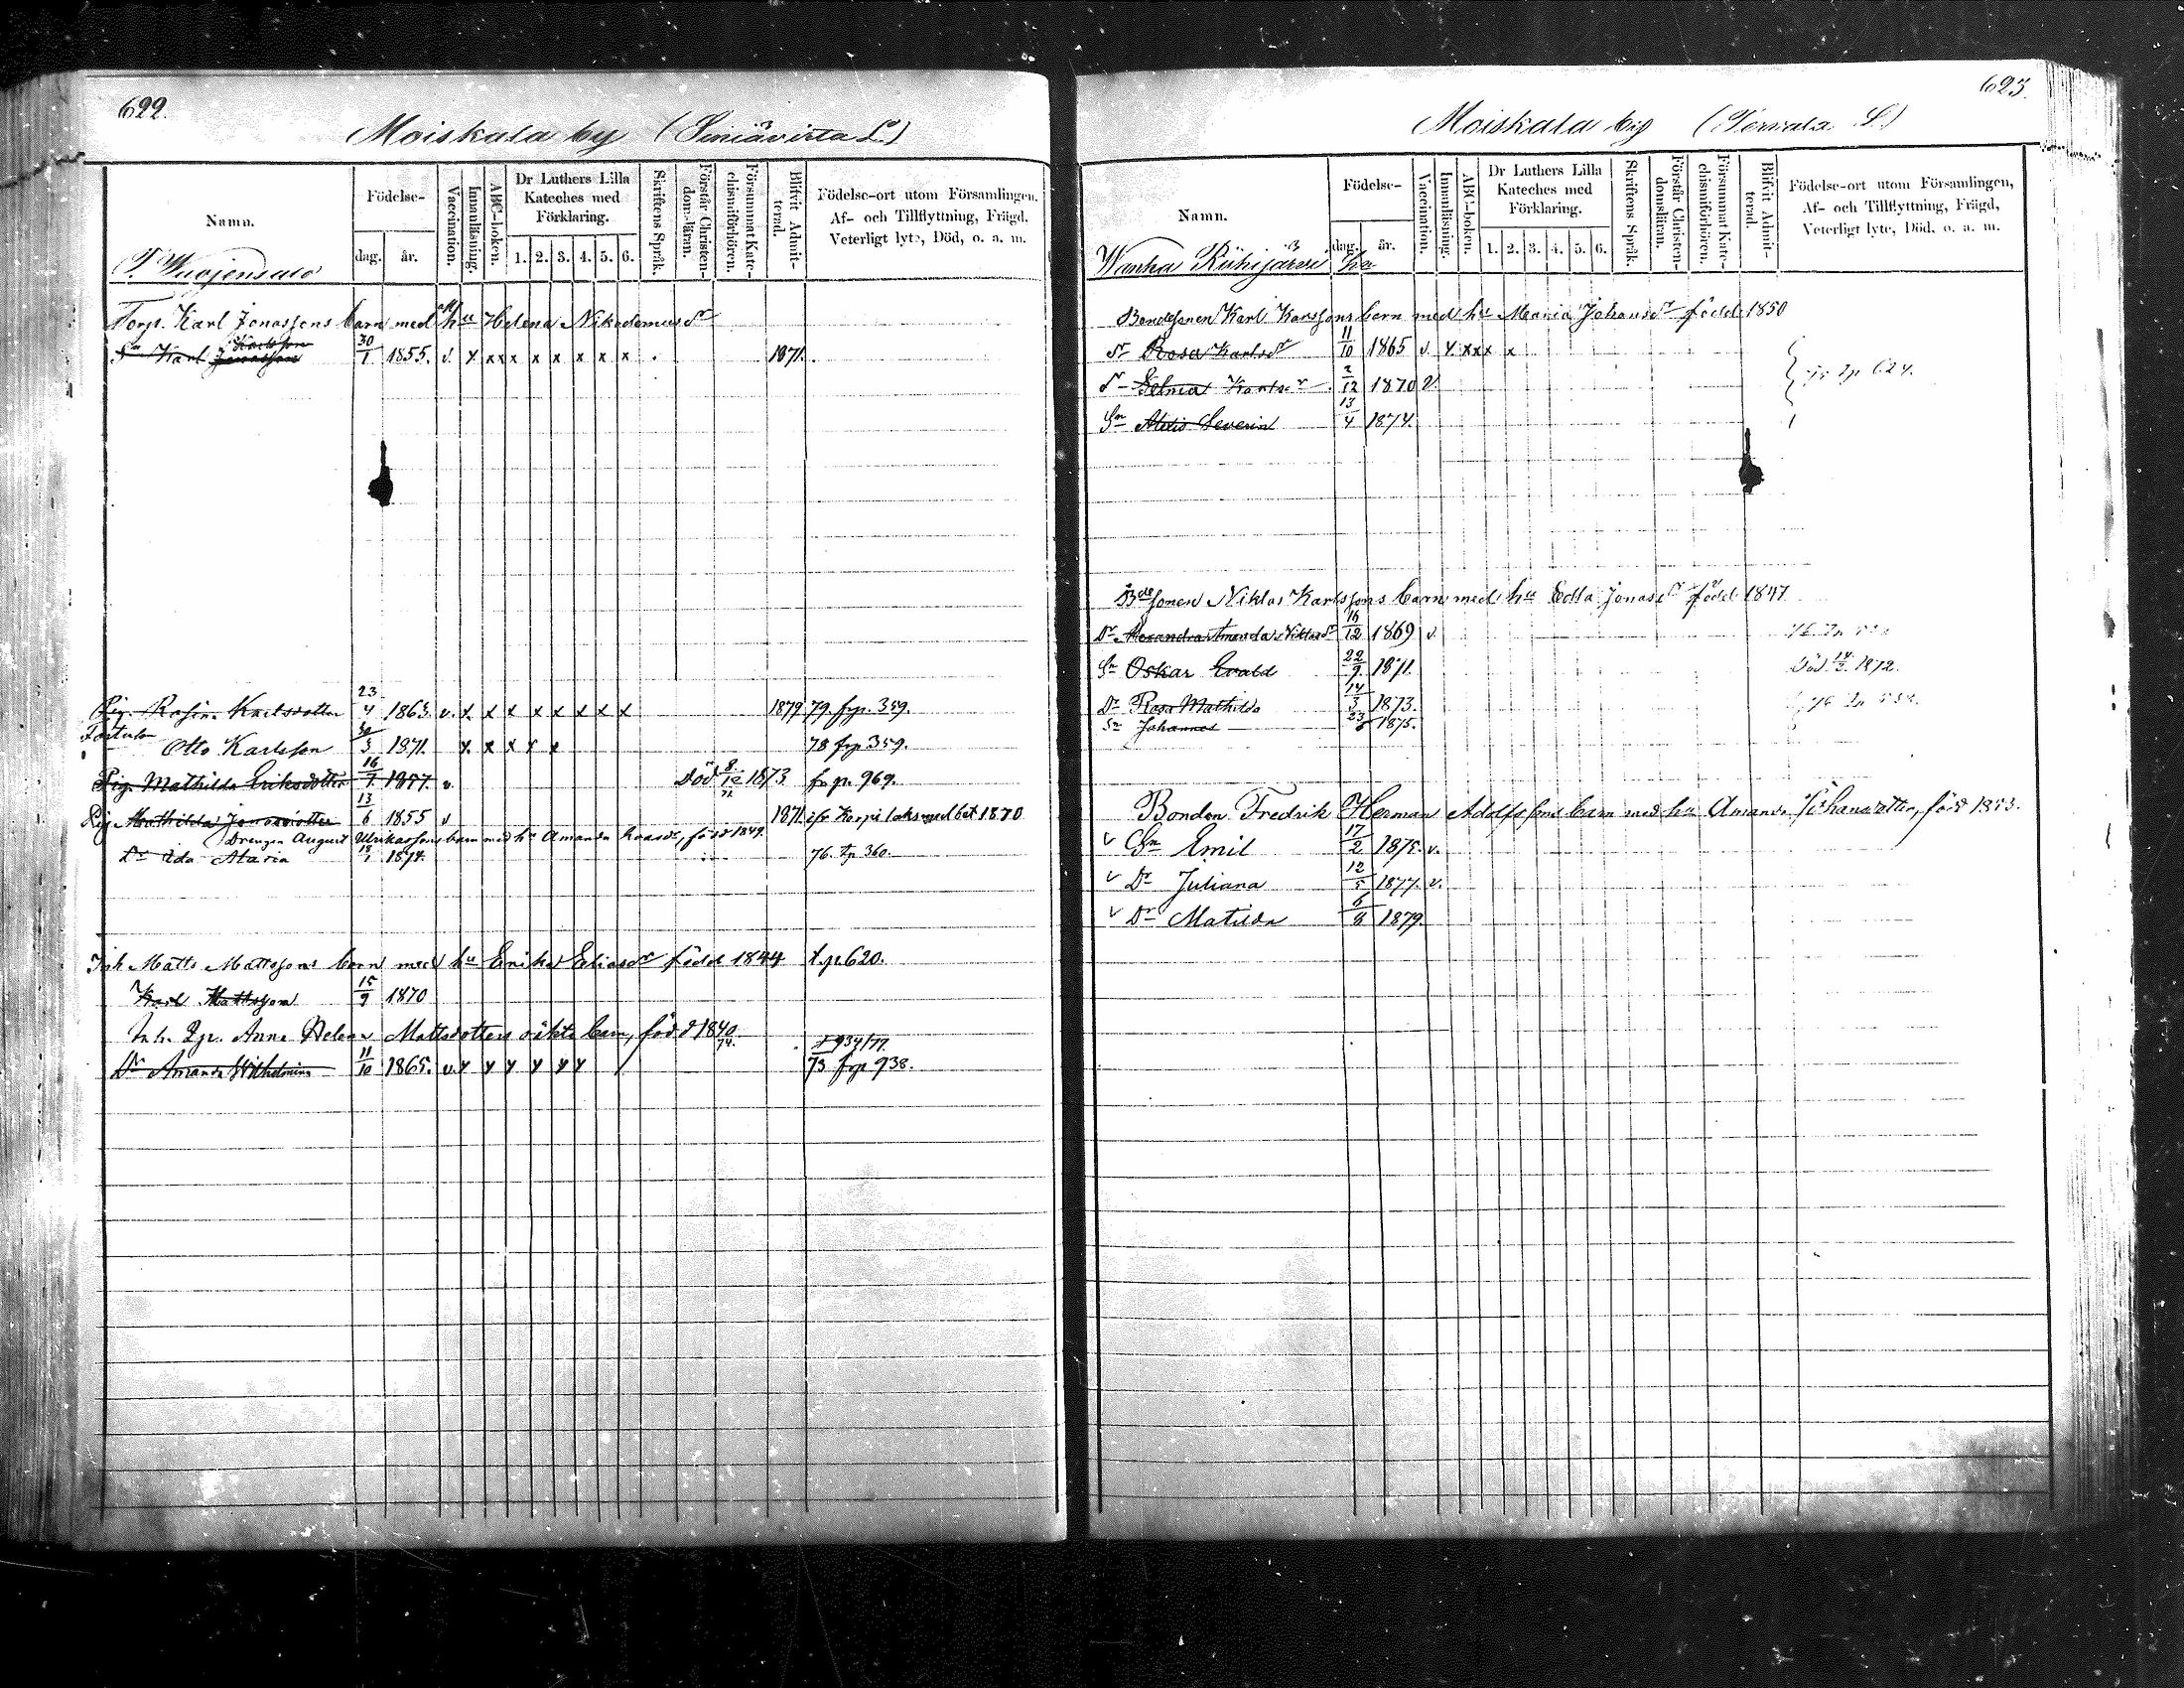 622.
Moiskala by (Siniävirta L.)
Namn.
Födelse-
dag.
år.
Vaccination.
Innanläsning.
ABC-boken.
Dr Luthers Lilla Kateches med Förklaring.
1. 2. 3. 4. 5. 6.
Skriftens Språk.
Förstår Christendomsläran.
Försummat Katechismiförhören.
Blifvit Admitterad.
Födelse-ort utom Församlingen,
Af- och Tillflyttning, Frägd,
Veterligt lyte, Död, o. a. m.
T. Wuojensalo
Torp. Karl Jonassons barn med hu Helena Nikodemusdr
Karlsson
Sn Karl Jonasson 30/1 1855. v. x x x x x x x x x 1871.
23
Pig. Rosina Karlsdotter 4 1863. v. x x x x x x x x 1879 79. frp. 359.
Otto Karlsson 30/3 1871. x x x x x 78 frp 359.
Pig. Mathilda Eriksdotter 16/7 1857. v. Död 8/12 1873 fr p. 969.
Pig. Mathilda Jonasdotter 13/6 1855 v 1871 Korpilaks med bet 1870
Drengen August Ulrikassons barn med hu Amanda födt 1849.
Dr Ida Maria 1874. 76. tp 360.
Inh Matts Mattssons barn med hu Erika Eliasdr född 1844 t.p. 620.
Karl Mattsson 15/9 1870
Inh. Qp. Anna Helena Mattsdotters oäkta barn, född 1840
t 934/77.
Dr Amanda Wilhelmina 11/10 1865. v. x x x x x x 73 frp 938.
623.
Moiskala by (Tervala L.)
Namn.
Födelse-
dag.
år.
Vaccination.
Innanläsning.
ABC-boken.
Dr Luthers Lilla Kateches med Förklaring.
1. 2. 3. 4. 5. 6.
Skriftens Språk.
Förstår Christendomsläran.
Försummat Katechismiförhören.
Blifvit Admitterad.
Födelse-ort utom Församlingen,
Af- och Tillflyttning, Frägd,
Veterligt lyte, Död, o. a. m.
Wanha Riihijärvi
Bondesonen Karl Karlssons barn med hu Maria Johansdr född 1850
Dr Rosa Karlsdr 11/10 1865 v. x x x x x
Dr Selma Karlsdr 2/12 1870 v. tp 624.
Sn Severin 13/4 1874.
Bdesonen Niklas Karlssons barn med hu Edla Jonasdr född 1847
Dr Alexandra Amanda Niklasdr 16/12 1869 v.
Sn Oskar Evald 22/9 1871. Död 14/3 1872.
Dr Rosa Mathilda 14/3 1873.
Sn Johannes 1875.
Bonden Fredrik Herman Adolfssons barn med hu Amanda Johansdotter, född 1853.
v Sn Emil 17/2 1875. v.
v Dr Juliana 12/5 1877. v.
v Dr Matilda 6/8 1879.